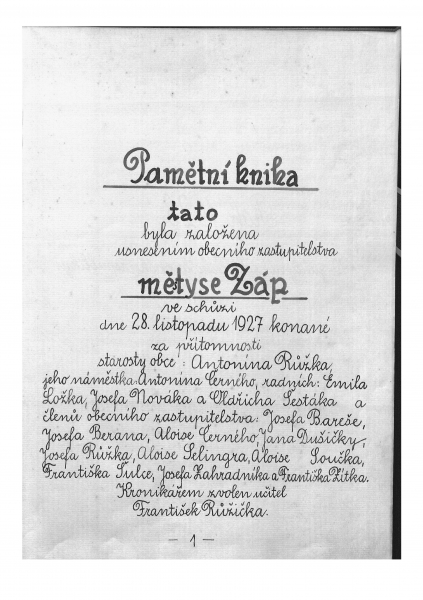 Pamětní kniha
tato
byla založena
usnesením obecního zastupitelstva
městyse Záp
ve schůzi
dne 28. listopadu 1927 konané
za přítomnosti
starosty obce: Antonína Růžka,
jeho náměstka: Antonína Černého, radních: Emila
Ložka, Josefa Nováka a Oldřicha Šestáka a
členů obecního zastupitelstva: Josefa Bareše,
Josefa Berana, Aloise Černého, Jana Dušičky,
Josefa Růžka, Aloise Selingra, Aloise Součka,
Františka Šulce, Josefa Zahradníka a Františka Zítka.
Kronikářem zvolen učitel
František Růžička.
– 1 –